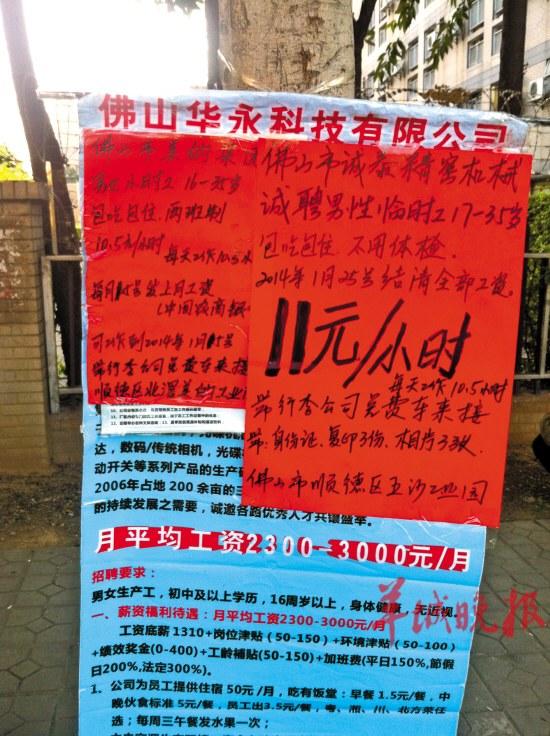 佛山华永科技有限公司
佛山市
小时工 16-35岁
包吃包住 两班制
10.5元/小时
每天工作10.5小
每月15号发上月工资
(中国
可工作到2014年1月15号
带行李公司免费车来接
顺德区北滘
佛山市诚
精密机械
诚聘男性临时工17-35岁
包吃包住 不用体检
2014年1月25号结清全部工资。
11元/小时
每天工作10.5小时
带行李公司免费车来接
带:身份证、复印3份、相片3张
佛山市顺德区五沙工业园
达,数码/传统相机,光碟
动开关等系列产品的生产研
2006年占地 200 余亩的三
的持续发展之需要,诚邀各路优秀人才共镶盛举。
月平均工资2300-3000元/月
招聘要求:
男女生产工,初中及以上学历,16周岁以上,身体健康,无近视。
一、薪资福利待遇:月平均工资2300-3000元/月
工资底薪1310+岗位津贴(50-150)+环境津贴(50-100)
+绩效奖金(0-400)+工龄补贴(50-150)+加班费(平日150%,節假
日200%,法定300%)。
1、公司为员工提供住宿 50元/月,吃有饭堂:早餐 1.5元/餐,中
晚伙食标准 5元/餐,员工出3.5元/餐,粤、湘、川、北方菜任
选;每周三午餐发水果一次;
羊城晚报